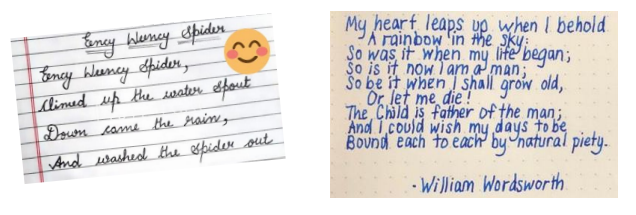 Ency Wency Spider
Ency Weency Spider,
Climed up the water spout
Down came the rain,
And washed the spider out
My heart leaps up when I behold
A rainbow in the sky:
So was it when my life began;
So is it now I am a man;
So be it when I shall grow old,
Or let me die!
The Child is father of the man;
And I could wish my days to be
Bound each to each by natural piety.
- William Wordsworth